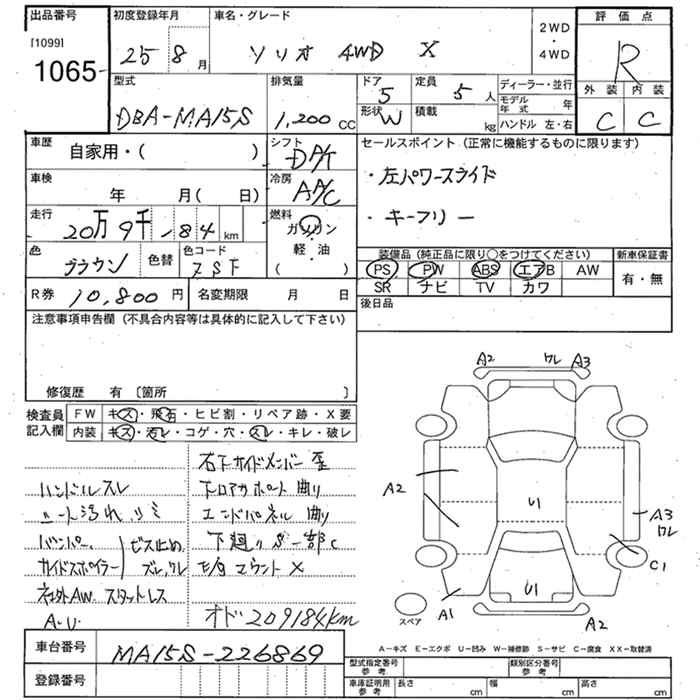 出品番号 初度登録年月 車名・グレード 2WD・4WD 評価点
[1099]
1065 25 8月 ソリオ 4WD X R
外装 内装
C C
型式 排気量 ドア 定員 ディーラー・並行
DBA-MA15S 1,200 CC 5 5人 モデル年式 年
形状 W 積載 kg ハンドル 左・右
車歴 シフト セールスポイント(正常に機能するものに限ります)
自家用・( ) DA/T
車検 冷房 左パワースライド
年 月( 日) AA/C
走行 燃料 キーフリー
20万9千184km ガソリン・軽油( )
色 色替 色コード 装備品(純正品に限り○をつけてください) 新車保証書
ブラウン ZSF PS PW ABS エアB AW 有・無
SR ナビ TV カワ
R券 10,800円 名変期限 月 日 後日品
注意事項申告欄(不具合内容等は具体的に記入して下さい)
修復歴 有〔箇所 〕
検査員記入欄 FW キズ・飛石・ヒビ割・リペア跡・X要
内装 キズ・汚レ・コゲ・穴・スレ・キレ・破レ
右下サイドメンバー歪
ハンドルスレ
下ロアサポート曲り
シート汚れ シミ
エンドパネル曲り
バンパー、サイドスポイラー ビス止め、ズレ、ワレ
下廻りサ一部C
E/gマウントX
社外AW スタットレス
A.U.
オド209184km
A2 ワレ A3
A2 U1 A3 ワレ
C1
A1 U1 A2
スペア
A-キズ E-エクボ U-凹み W-補修跡 S-サビ C-腐食 XX-取替済
車台番号 MA15S-226869
型式指定番号 参考 類別区分番号 参考
登録番号
車庫証明用 参考 長さ cm 幅 cm 高さ cm